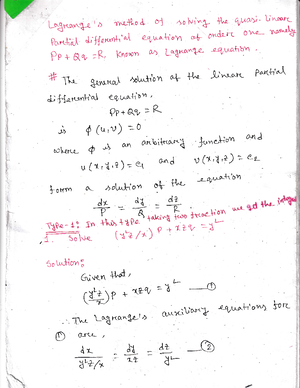 Lagrange's method of solving the quasi-Linear
Partial differential equation of order one namely
Pp+Qq=R, known as Lagrange equation.
# The general solution of the linear partial
differential equation.
Pp+Qq=R
is φ(u,v)=0
where φ is an arbitrary function and
u(x,y,z)=c₁ and v(x,y,z)=c₂
form a solution of the equation
dx/P = dy/Q = dz/R
Type-1: In this type taking two fraction we get the integral
1. Solve (y²z/x)p + xzq = y²
Solution:
Given that,
(y²z/x)p + xzq = y² —①
∴ The Lagrange's auxiliary equations fore
① are,
dx/(y²z/x) = dy/xz = dz/y² —②